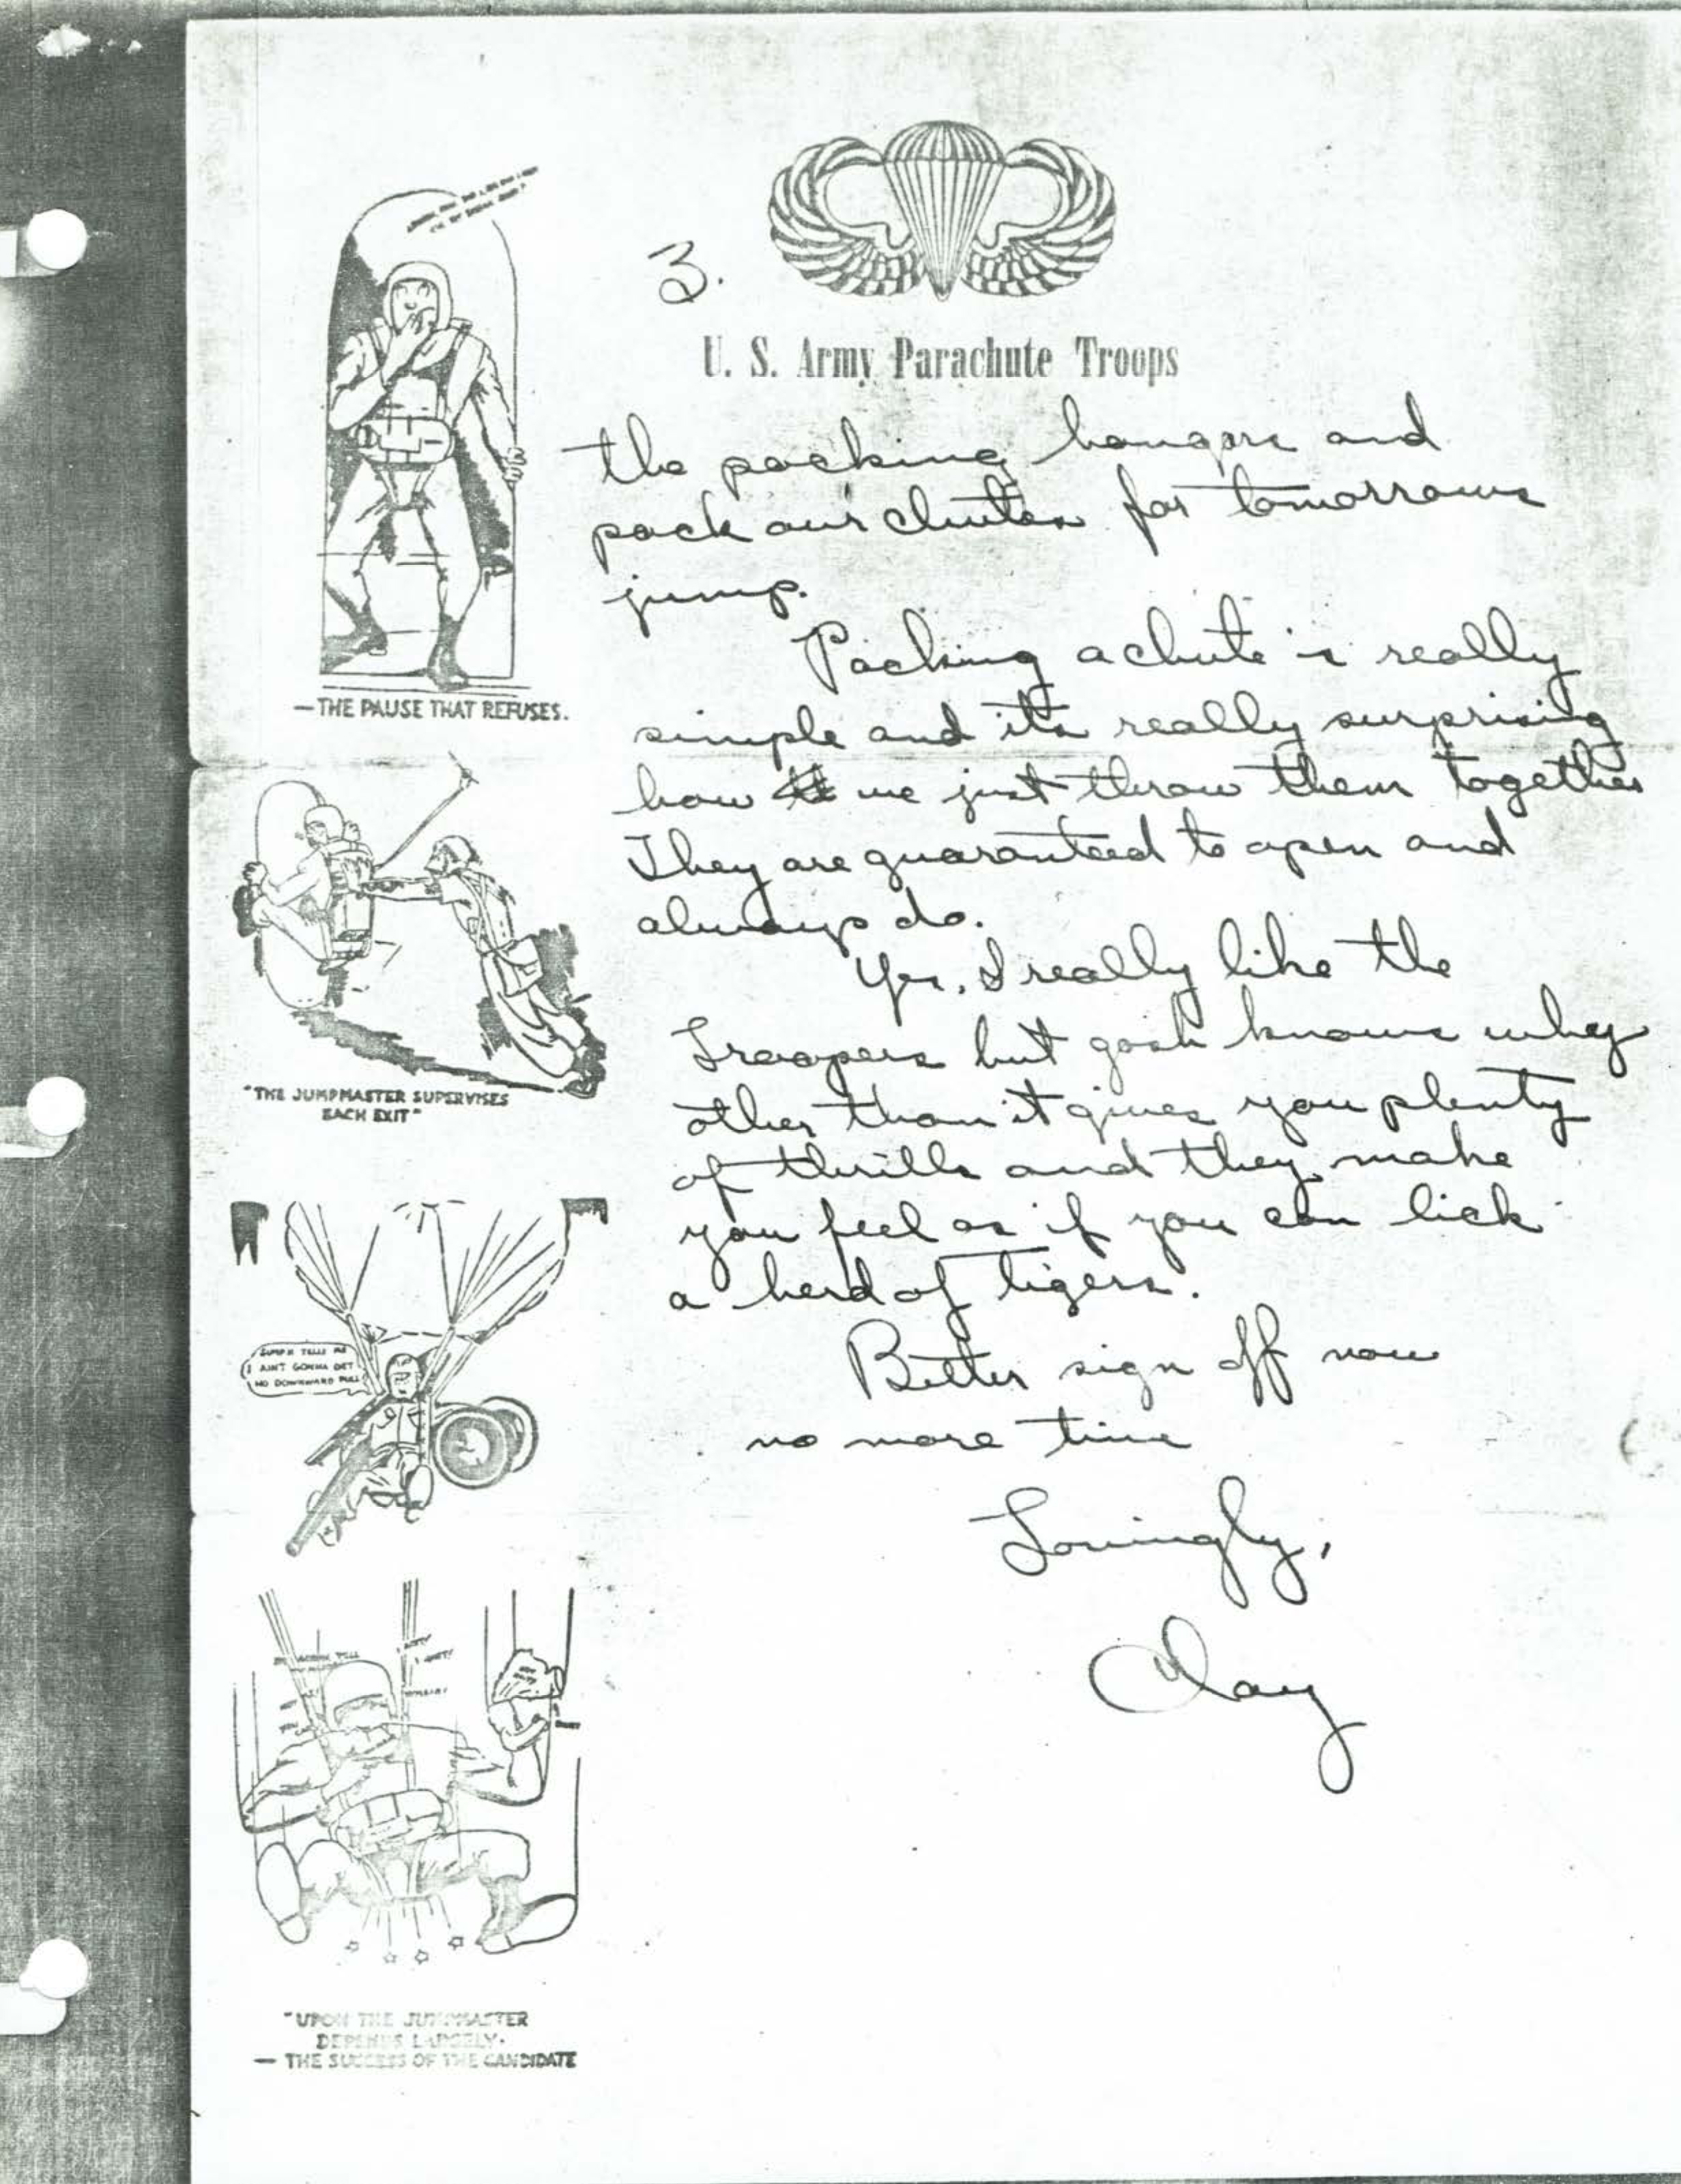 3.
U. S. Army Parachute Troops
the packing hangars and
pack our chutes for tomorrows
jump.
Packing a chute is really
simple and its really surprising
how we just throw them together
They are guaranteed to open and
always do.
Yes, I really like the
Troopers but gosh knows why
other than it gives you plenty
of thrills and they make
you feel as if you can lick
a herd of tigers.
Better sign off now
no more time
Lovingly,
Clay
—THE PAUSE THAT REFUSES.
"THE JUMPMASTER SUPERVISES
EACH EXIT"
TELLS ME
I AINT GONNA GET
NO DOWNWARD PULL
"UPON THE JUMPMASTER
DEPENDS LARGELY-
— THE SUCCESS OF THE CANDIDATE